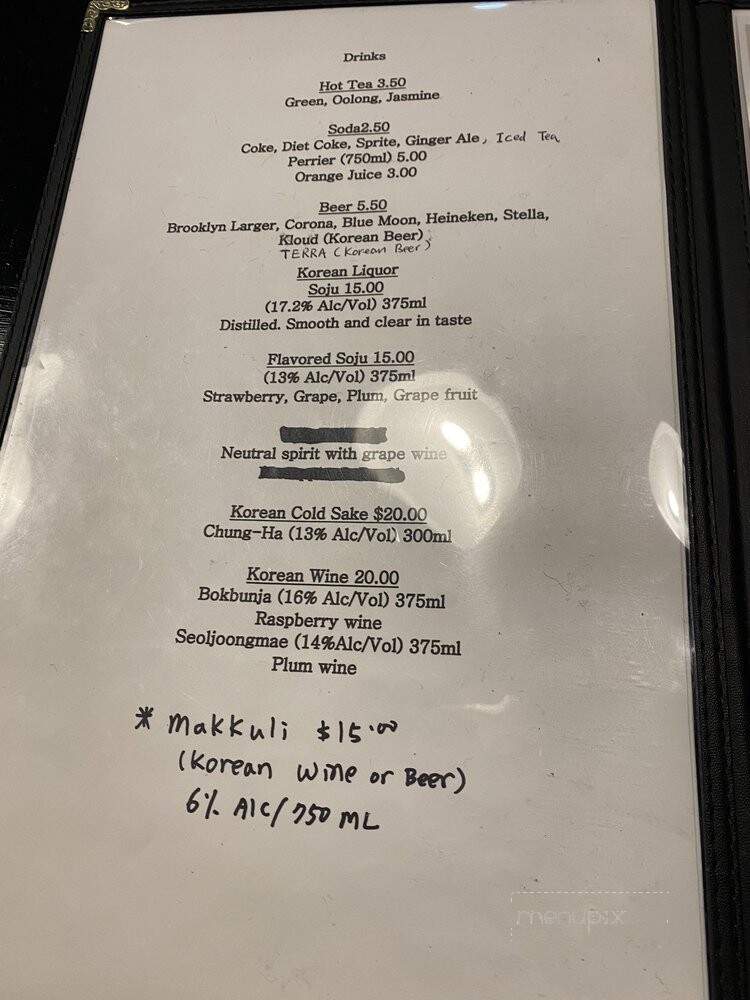 Drinks
Hot Tea 3.50
Green, Oolong, Jasmine
Soda2.50
Coke, Diet Coke, Sprite, Ginger Ale, Iced Tea
Perrier (750ml) 5.00
Orange Juice 3.00
Beer 5.50
Brooklyn Larger, Corona, Blue Moon, Heineken, Stella,
Kloud (Korean Beer),
TERRA (Korean Beer)
Korean Liquor
Soju 15.00
(17.2% Alc/Vol) 375ml
Distilled. Smooth and clear in taste
Flavored Soju 15.00
(13% Alc/Vol) 375ml
Strawberry, Grape, Plum, Grape fruit
Neutral spirit with grape wine
Korean Cold Sake $20.00
Chung-Ha (13% Alc/Vol) 300ml
Korean Wine 20.00
Bokbunja (16% Alc/Vol) 375ml
Raspberry wine
Seoljoongmae (14%Alc/Vol) 375ml
Plum wine
* Makkuli $15.00
(Korean Wine or Beer)
6% Alc/750 ML
menupix